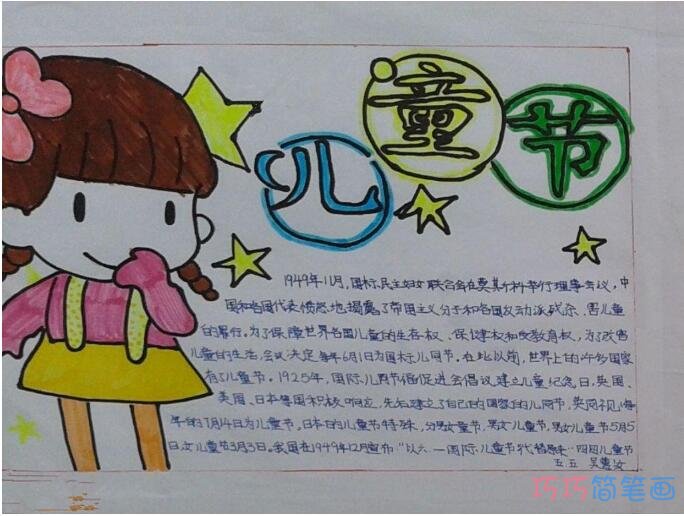 儿童节
1949年11月,国际民主妇女联合会在莫斯科举行理事会议,中
国和各国代表愤怒地揭露了帝国主义分子和各国反动派残杀、害儿童
的罪行。为了保障世界各国儿童的生存权、保健权和受教育权,为了改善
儿童的生活,会议决定每年6月1日为国际儿童节。在此以前,世界上的许多国家
有了儿童节。1925年,国际儿童节促进会倡议建立儿童纪念日,英国、
美国、日本等国积极响应,先后建立了自己的国家的儿童节,英国规定每
年的7月14日为儿童节,日本的儿童节特殊,分男女童节,男女儿童节,男儿童节5月5
日,女儿童节3月3日,我国在1949年12月宣布"以六一国际儿童节代替原来"四四儿童节
五五
巧巧简笔画